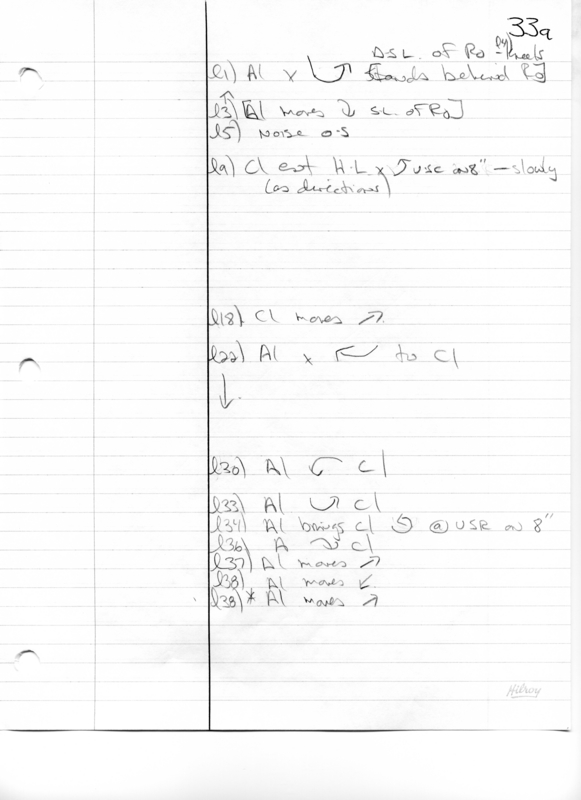 33a
DSL. of Ro
l1) Al x ⤻ Stands behind Ro]
l3) [Al moves ↓ SL. of Ro]
l5) Noise O.S
l9) Cl ent H.L x USC on 8" – slowly
(as directions)
l18) Cl moves ↗
l22) Al x ↖ to Cl
↓
l30) Al Cl
l33) Al Cl
l34) Al brings Cl ↺ @ USR on 8"
l36) A Cl
l37) Al moves ↗
l38) Al moves ↙
l38) * Al moves ↗
Hilroy